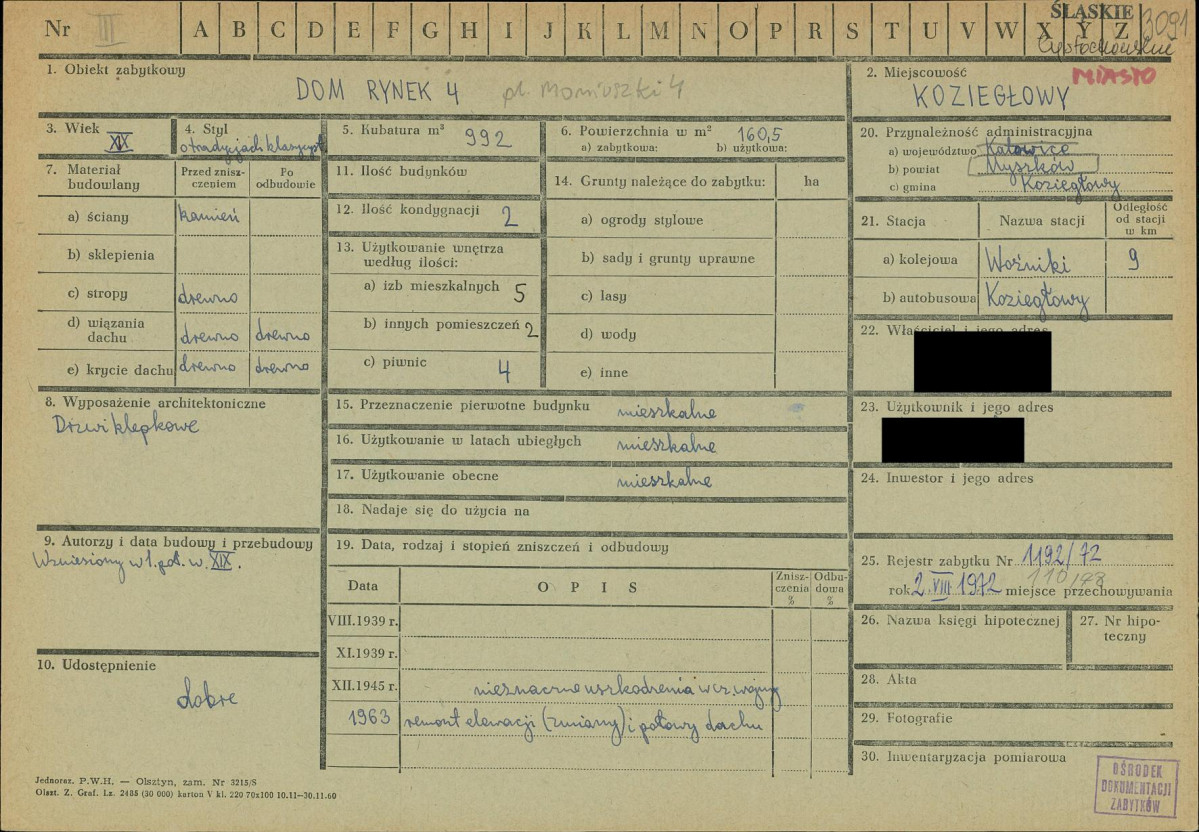 Nr III A B C D E F G H I J K L M N O P R S T U V W X Y Z
ŚLĄSKIE
3091
Częstochowskie
MIASTO
1. Obiekt zabytkowy
DOM RYNEK 4 pl. Moniuszki 4
2. Miejscowość
KOZIEGŁOWY
3. Wiek
XIX
4. Styl
o tradycjach klasycyst.
5. Kubatura m³ 992
6. Powierzchnia w m² 160,5
a) zabytkowa: b) użytkowa:
7. Materiał budowlany
Przed zniszczeniem
Po odbudowie
a) ściany kamień
b) sklepienia
c) stropy drewno
d) wiązania dachu drewno drewno
e) krycie dachu drewno drewno
8. Wyposażenie architektoniczne
Drzwi klepkowe
9. Autorzy i data budowy i przebudowy
Wzniesiony w 1. poł. w. XIX.
10. Udostępnienie
dobre
11. Ilość budynków
12. Ilość kondygnacji 2
13. Użytkowanie wnętrza
według ilości:
a) izb mieszkalnych 5
b) innych pomieszczeń 2
c) piwnic 4
14. Grunty należące do zabytku: ha
a) ogrody stylowe
b) sady i grunty uprawne
c) lasy
d) wody
e) inne
15. Przeznaczenie pierwotne budynku mieszkalne
16. Użytkowanie w latach ubiegłych mieszkalne
17. Użytkowanie obecne mieszkalne
18. Nadaje się do użycia na
19. Data, rodzaj i stopień zniszczeń i odbudowy
Data OPIS Zniszczenia % Odbudowa %
VIII.1939 r.
XI.1939 r.
XII.1945 r. nieznaczne uszkodzenia w cz. wojny
1963 remont elewacji (zmiany) i połowy dachu
20. Przynależność administracyjna
a) województwo Katowice
b) powiat Myszków
c) gmina Koziegłowy
21. Stacja Nazwa stacji Odległość od stacji w km
a) kolejowa Woźniki 9
b) autobusowa Koziegłowy
22. Właściciel i jego adres
23. Użytkownik i jego adres
24. Inwestor i jego adres
25. Rejestr zabytku Nr 1192/72
110/78
rok 2.VIII 1972 miejsce przechowywania
26. Nazwa księgi hipotecznej
27. Nr hipoteczny
28. Akta
29. Fotografie
30. Inwentaryzacja pomiarowa
OŚRODEK
DOKUMENTACJI
ZABYTKÓW
Jednoraz. P.W.H. — Olsztyn, zam. Nr 3215/S
Olszt. Z. Graf. Lz. 2485 (30 000) karton V kl. 220 70x100 10.11—30.11.60